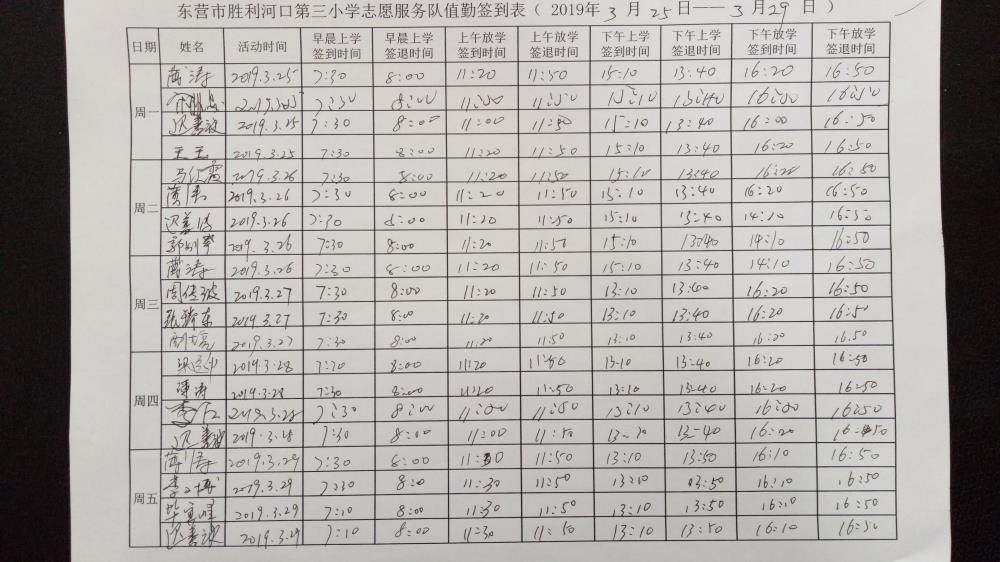 东营市胜利河口第三小学志愿服务队值勤签到表（ 2019年 3 月 25日——3 月29 日 ）
日期 姓名 活动时间 早晨上学签到时间 早晨上学签退时间 上午放学签到时间 上午放学签退时间 下午上学签到时间 下午上学签退时间 下午放学签到时间 下午放学签退时间
周一 2019.3.25 7:30 8:00 11:20 11:50 15:10 13:40 16:20 16:50
2019.3.25 7:30 8:00 11:50 13:40 16:50
2019.3.25 7:30 8:00 11:00 11:50 15:10 13:40 16:00 16:50
王玉 2019.3.25 7:30 8:00 11:20 11:50 15:10 13:40 16:20 16:50
马红霞 2019.3.26 7:30 8:00 11:20 11:50 15:10 13:40 16:20 16:50
周二 2019.3.26 7:30 8:00 11:20 11:50 15:10 13:40 16:20 16:50
2019.3.26 7:30 8:00 11:20 11:50 15:10 13:40 14:10 16:50
2019.3.26 7:30 8:00 11:20 11:50 15:10 13:40 14:10 16:50
周三 2019.3.26 7:30 8:00 11:20 11:50 15:10 13:40 14:10 16:50
2019.3.27 7:30 8:00 11:20 11:50 13:10 13:40 16:20 16:50
2019.3.27 7:30 8:00 11:20 11:50 13:10 13:40 16:20 16:50
2019.3.27 7:30 8:00 11:20 11:50 13:10 13:40 16:20 16:50
周四 2019.3.28 7:30 8:00 11:20 11:50 13:10 13:40 16:20 16:50
2019.3.28 7:30 8:00 11:20 11:50 13:10 13:40 16:20 16:50
2019.3.28 7:30 8:00 11:50 13:10 13:40 16:50
2019.3.28 7:30 8:00 11:00 11:50 13:40 16:20 16:50
周五 2019.3.29 7:30 8:00 11:30 11:50 13:10 13:50 16:10 16:50
2019.3.29 7:30 8:00 11:30 11:50 13:10 13:50 16:10 16:50
2019.3.29 7:10 8:00 11:30 11:50 13:10 13:50 16:10 16:50
2019.3.29 7:10 8:00 11:30 11:50 13:10 13:50 16:10 16:50